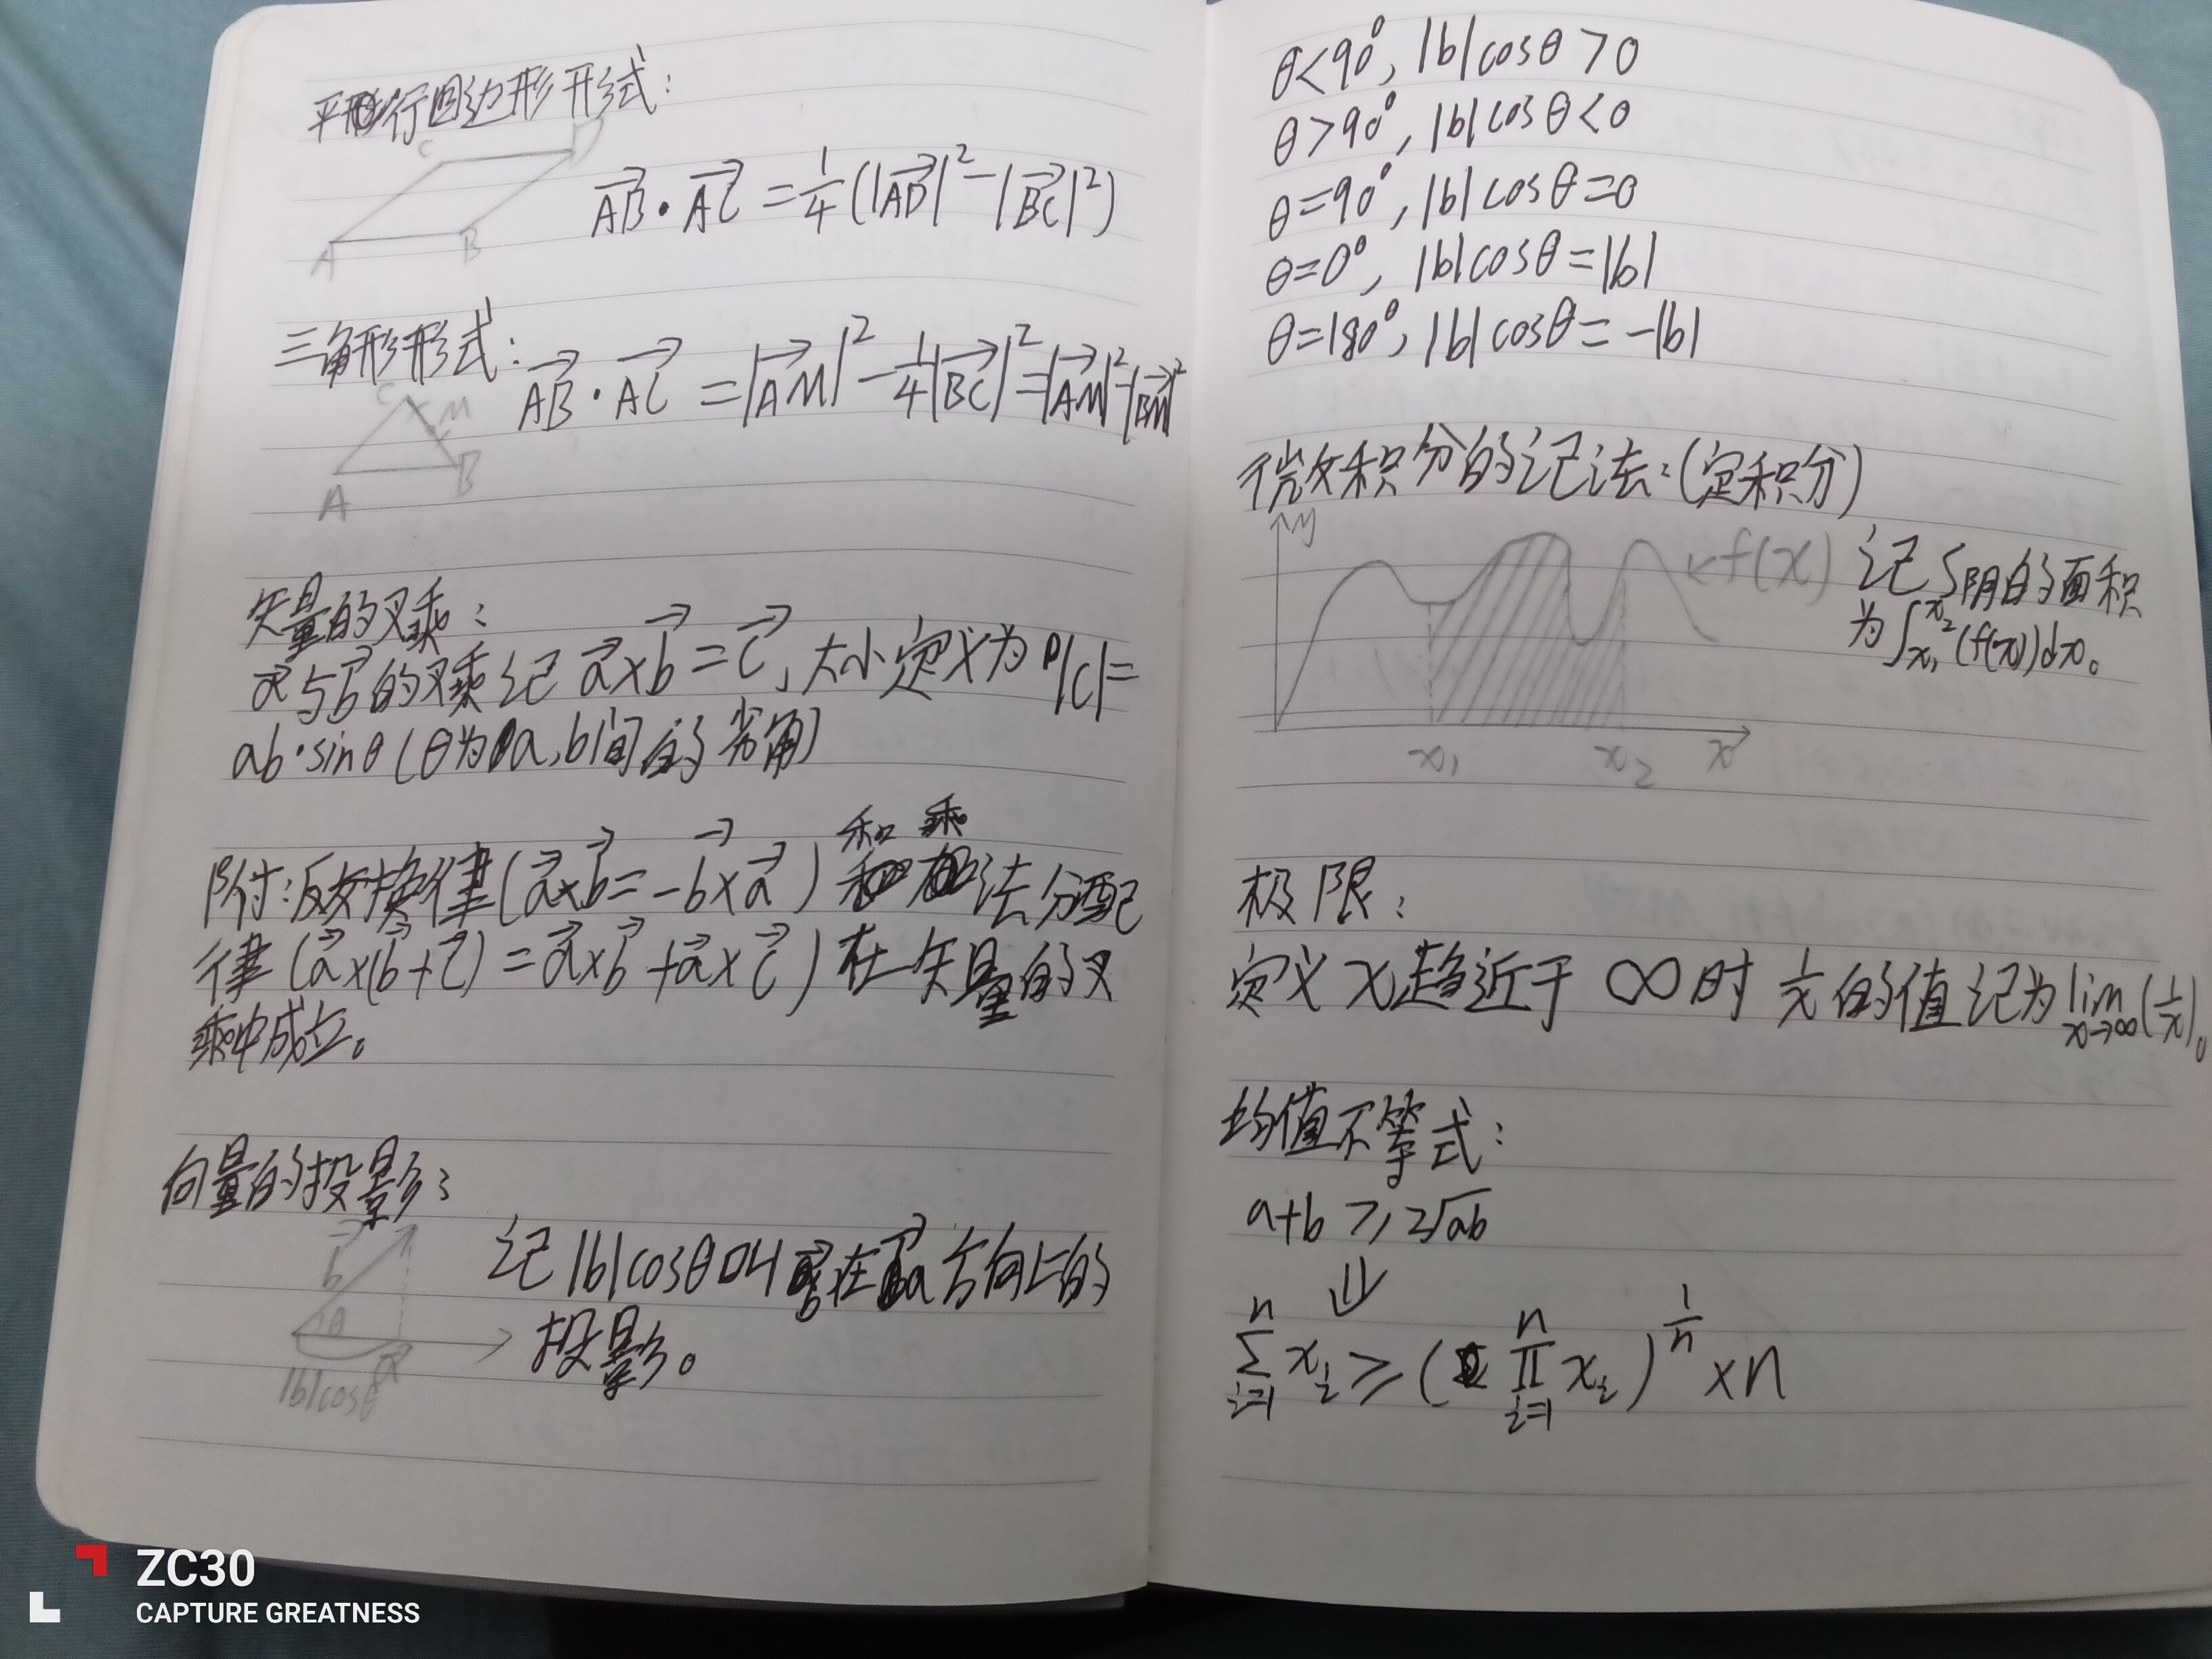 平行四边形形式:
C D
A B
AB·AC=1/4(|AD|²-|BC|²)
三角形形式:
AB·AC=|AM|²-1/4|BC|²=|AM|²-|BM|²
C M
A B
矢量的叉乘:
a与b的叉乘记a×b=c,大小定义为|c|=
ab·sinθ(θ为a,b间的劣角)
附:反交换律(a×b=-b×a)和乘法分配
律(a×(b+c)=a×b+a×c)在矢量的叉
乘中成立。
向量的投影:
b
θ
a
|b|cosθ
记|b|cosθ叫b在a方向上的
投影。
θ<90°,|b|cosθ>0
θ>90°,|b|cosθ<0
θ=90°,|b|cosθ=0
θ=0°,|b|cosθ=|b|
θ=180°,|b|cosθ=-|b|
微积分的记法:(定积分)
y
f(x)
x₁ x₂ x
记S阴的面积
为∫x₁x₂(f(x))dx。
极限:
定义x趋近于∞时1/x的值记为lim x→∞(1/x)。
均值不等式:
a+b≥2√ab
⇓
∑i=1n xi≥(∏i=1n xi)^1/n×n
ZC30
CAPTURE GREATNESS